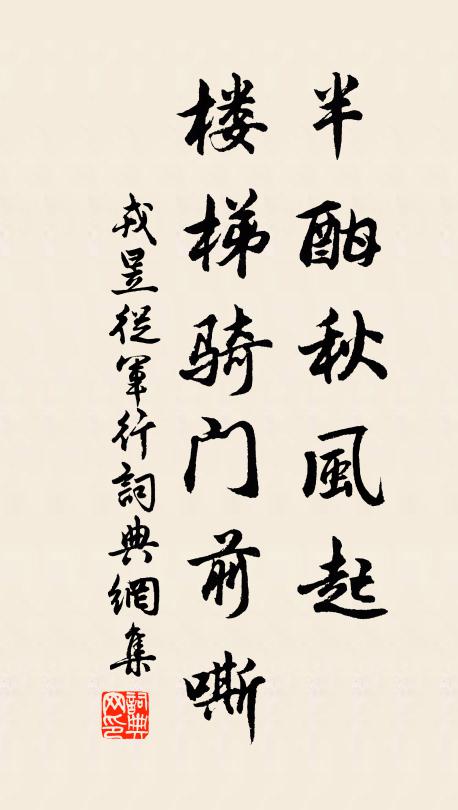 半酣秋風起
楼梯骑门前嘶
戎昱從軍行詞典網集
詞典网印